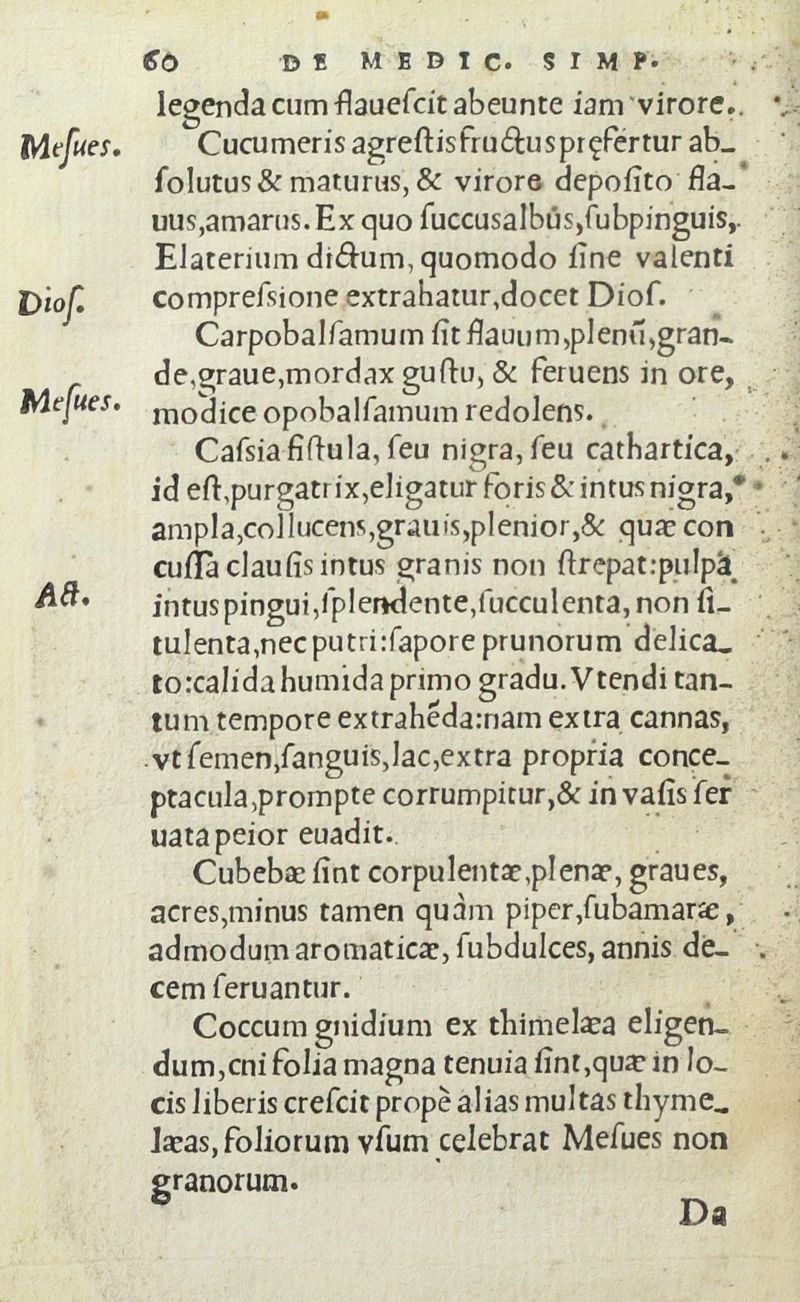 60 DE MEDIC. SIMP.
legenda cum flaueſcit abeunte iam virore.
Meſues.
Cucumeris agreſtis fructus pręfertur ab-
ſolutus & maturus, & virore depoſito fla-
uus,amarus. Ex quo ſuccus albus,ſubpinguis,
Elaterium dictum, quomodo ſine valenti
Dioſ.
compreſsione extrahatur,docet Dioſ.
Carpobalſamum ſit flauum,plenū,gran-
de,graue,mordax guſtu, & feruens in ore,
Meſues.
modice opobalſamum redolens.
Caſsia fiſtula, ſeu nigra, ſeu cathartica,
id eſt,purgatrix,eligatur foris & intus nigra,
ampla,collucens,grauis,plenior,& quæ con
cuſſa clauſis intus granis non ſtrepat:pulpa
Act.
intus pingui,ſplendente,ſucculenta, non ſi-
tulenta,nec putri:ſapore prunorum delica-
to:calida humida primo gradu. Vtendi tan-
tum tempore extrahēda:nam extra cannas,
vt ſemen,ſanguis,lac,extra propria conce-
ptacula,prompte corrumpitur,& in vaſis ſer
uata peior euadit.
Cubebæ ſint corpulentæ,plenæ, graues,
acres,minus tamen quàm piper,ſubamaræ,
admodum aromaticæ, ſubdulces, annis de-
cem ſeruantur.
Coccum gnidium ex thimelæa eligen-
dum,cni folia magna tenuia ſint,quæ in lo-
cis liberis creſcit propè alias multas thyme-
læas, foliorum vſum celebrat Meſues non
granorum.
Da